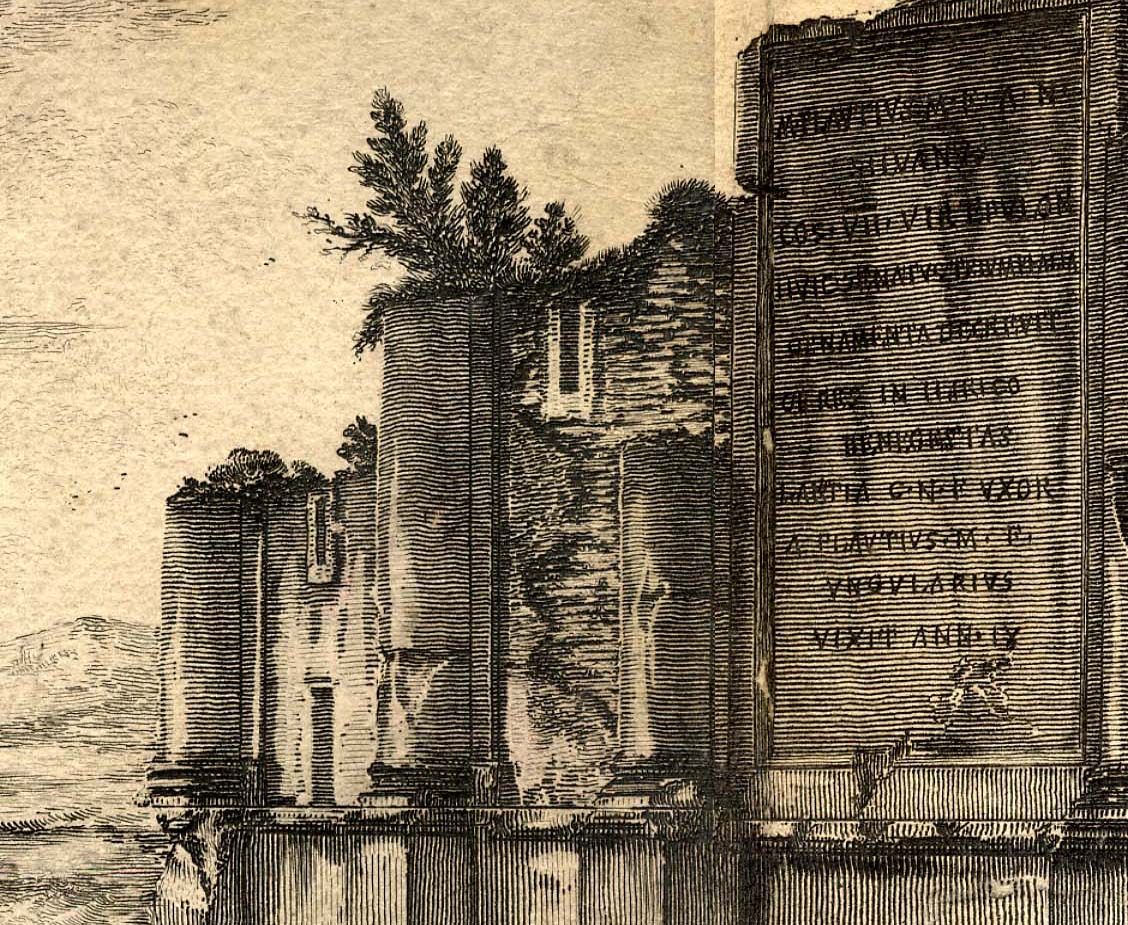 M·PLAVTIVS·M·F·A·N·
SILVANVS
COS·VII·VIR EPVLON
HVIC SENATVS TRIVMPHALIA
ORNAMENTA DECREVIT
OB RES IN ILIRICO
BENE GESTAS
LARTIA C·N·F VXOR
A·PLAVTIVS·M·F·
VRGVLARIVS
VIXIT ANN·IX